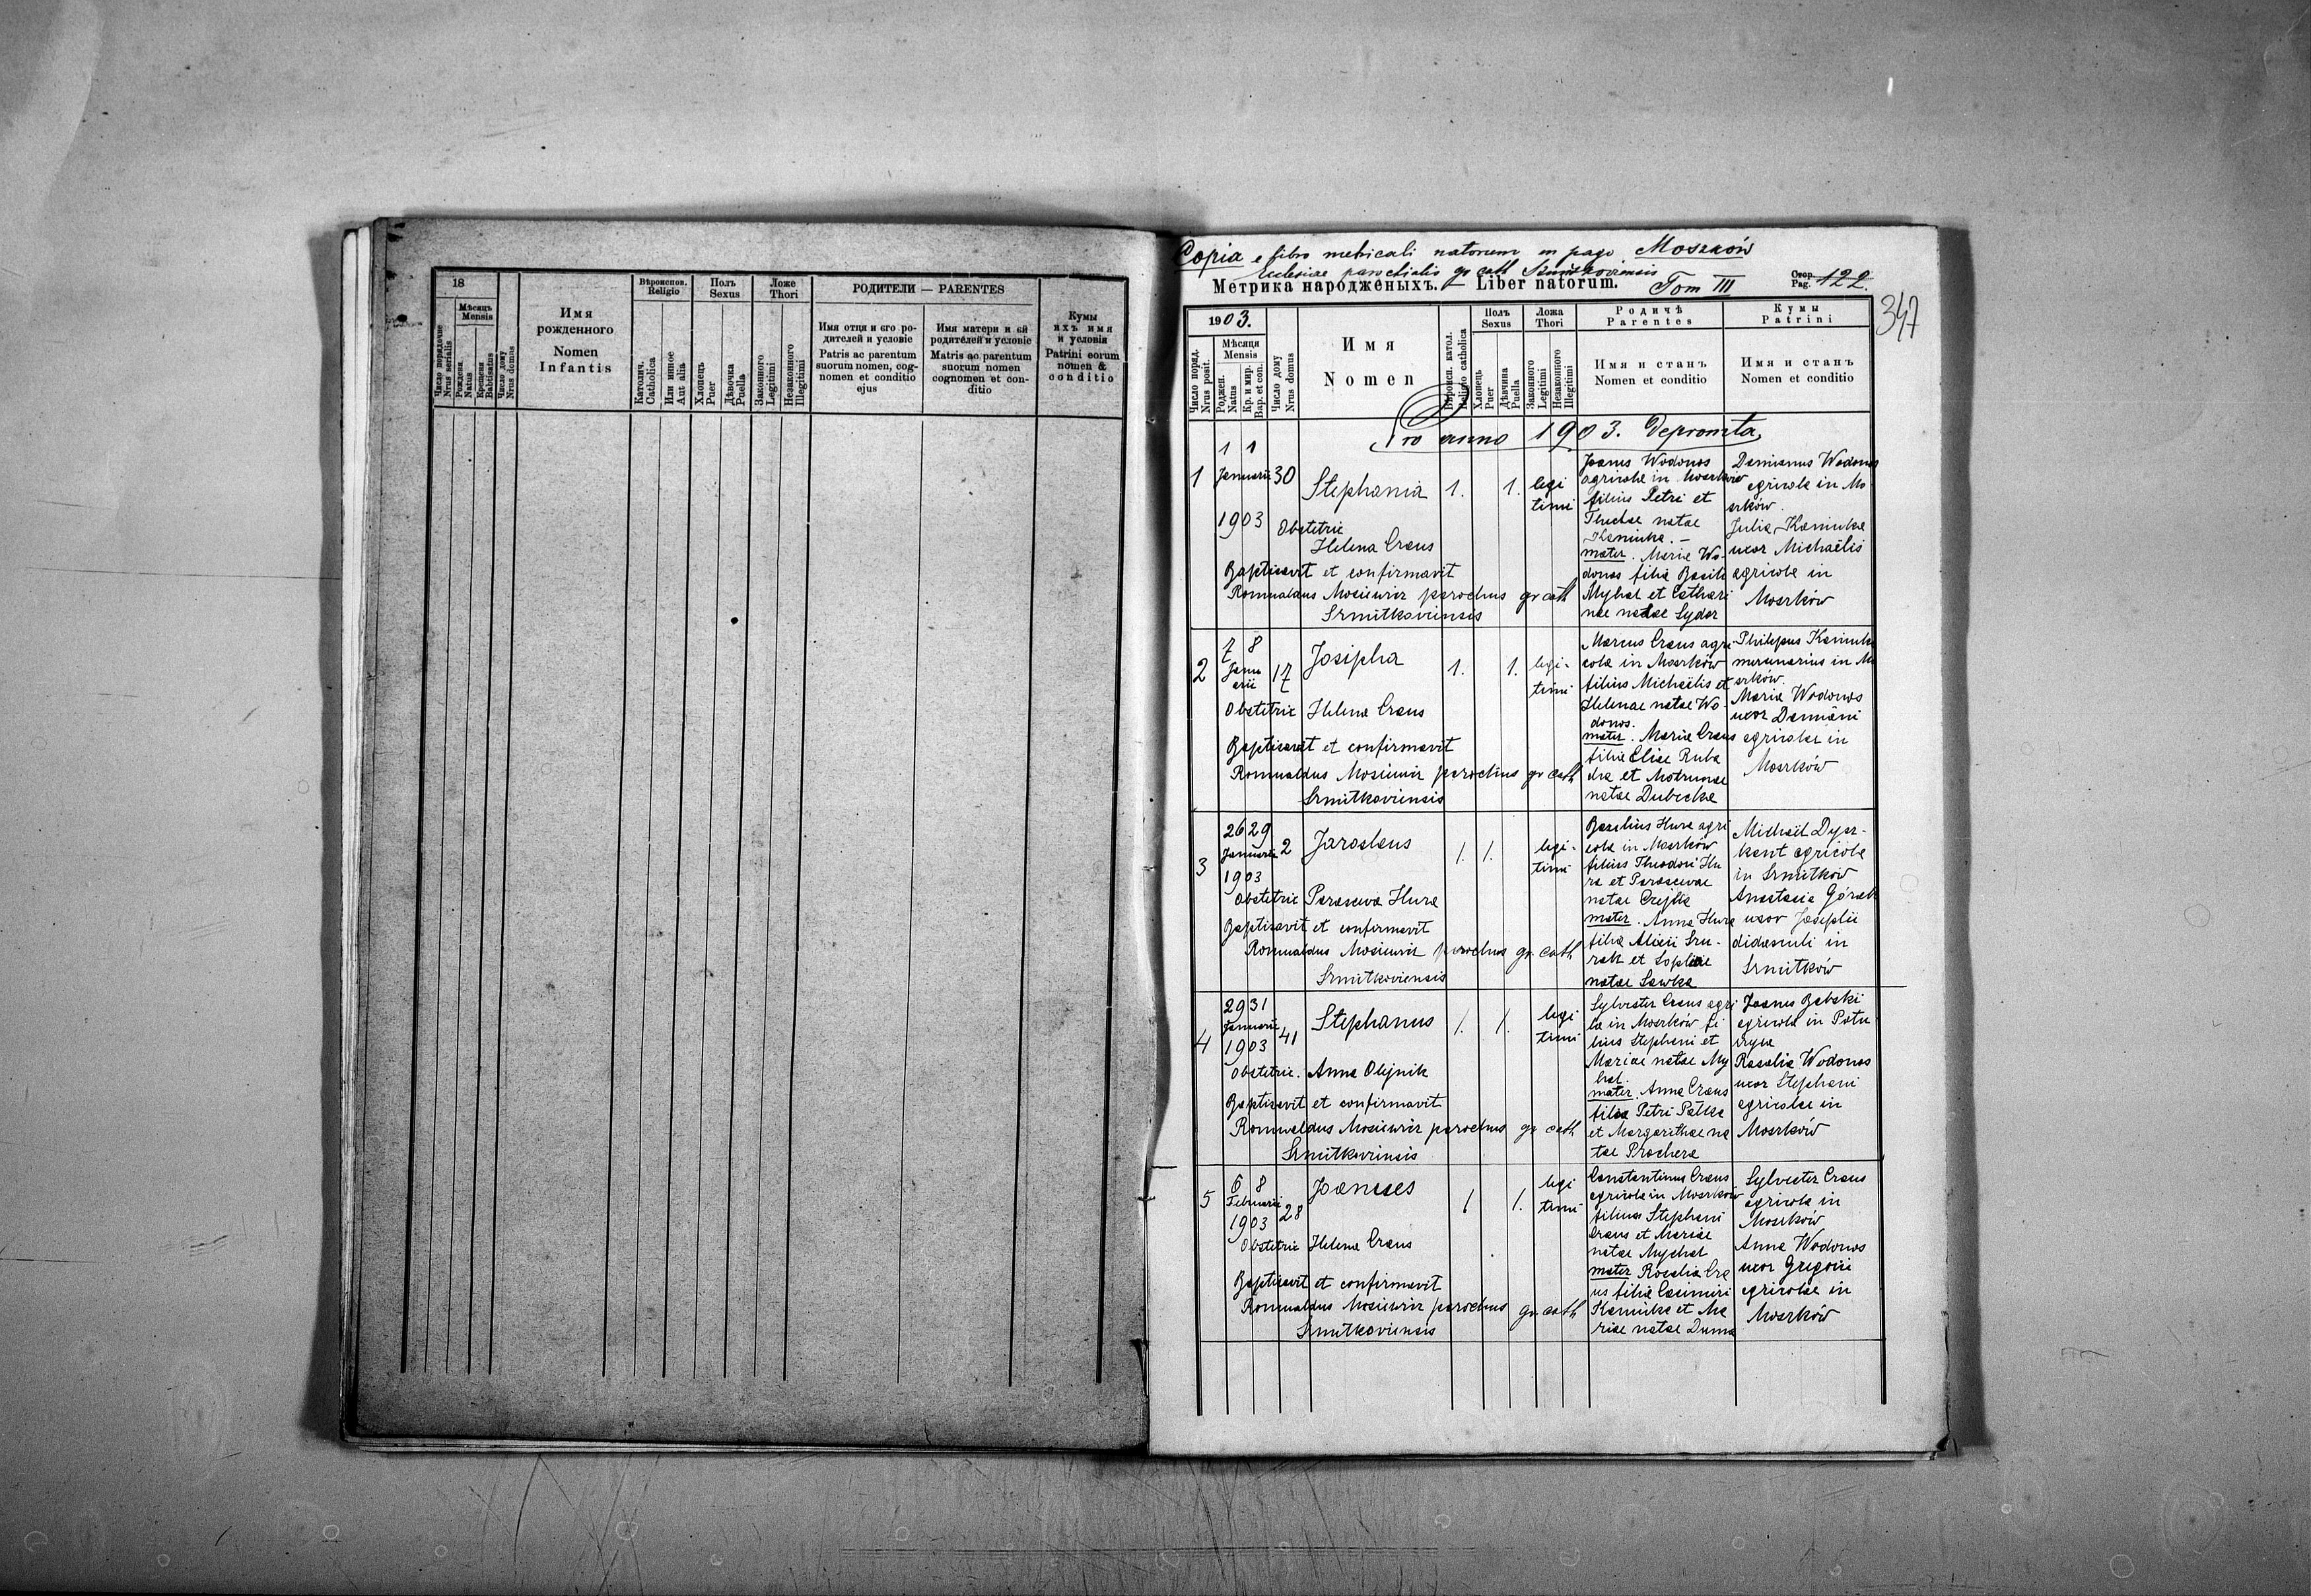 18
Мѣсяцъ
Mensis
Число порядочне
Nrus serialis
Рожденъ
Natus
Крещенъ
Babtisatus
Число дому
Nrus domus
Имя
рожденного
Nomen
Infantis
Вѣроиспов.
Religio
Католич.
Catholica
Или инное
Aut alia
Полъ
Sexus
Хлопець
Puer
Дѣвочка
Puella
Ложе
Thori
Законного
Legitimi
Незаконного
Illegitimi
РОДИТЕЛИ — PARENTES
Имя отца и его ро-
дителей и условіе
Patris ac parentum
suorum nomen, cog-
nomen et conditio
ejus
Имя матери и ей
родителей и условіе
Matris ac parentum
suorum nomen
cognomen et con-
ditio
Кумы
ихъ имя
и условія
Patrini eorum
nomen &
conditio
Copia e libro metricali natorum in pago Moszków
Ecclesiae parochialis gr cath
Метрика народженыхъ. — Liber natorum. Tom III
Стор.
Pag. 122.
347
1903.
Мѣсяця
Mensis
Число поряд.
Nrus posit.
Роджен.
Natus
Кр. и мир.
Bap. et con.
Число дому
Nrus domus
Имя
Nomen
Вѣроисп. катол.
Religio catholica
Полъ
Sexus
Хлопець
Puer
Дѣвчина
Puella
Ложа
Thori
Законного
Legitimi
Незаконного
Illegitimi
Родичѣ
Parentes
Имя и станъ
Nomen et conditio
Кумы
Patrini
Имя и станъ
Nomen et conditio
Pro anno 1903. Depromta
1 1
1 Januarii 30 Stephania 1. 1. legi
timi
1903
Obstetric
Helena Craus
Baptisavit et confirmavit
Romualdus Mosiewicz parochus gr cath
Szmitkoviensis
Joanes Wodonos
agricola in Moszków
filius Petri et
Theclae natae
Kaminka. —
mater. Maria Wo-
donos filia Basili
Myhal et Cathari
nae natae Sydor
Damianus Wodonos
agricola in Mo
szków.
Julia Kaminka
uxor Michaëlis
agricola in
Moszków
7 8
2 Janu
arii 17 Josipha 1. 1. legi-
timi
Obstetric Helena Craus
Baptisavit et confirmavit
Romualdus Mosiewicz parochus gr cath
Szmitkoviensis
Marcus Craus agri
cola in Moszków
filius Michaëlis et
Helenae natae Wo-
donos.
mater. Maria Craus
filia Eliae Ruba
cha et Motrunae
natae Dubecka
Philipus Kaminka
mercenarius in Mo
szków.
Maria Wodonos
uxor Damiani
agricolae in
Moszków
26 29
3 Januarii 2 Jaroslaus 1. 1. legi-
timi
1903
Obstetric Parasceva Hura
Baptisavit et confirmavit
Romualdus Mosiewicz parochus gr. cath
Szmitkoviensis
Basilius Hura agri
cola in Moszków
filius Theodori Hu
ra et Parascevae
natae
mater. Anna Hura
filia Alexii
et Sophiae
natae Sawka
Michaël
agricola
in Szmitków
Anastasia
uxor Josephi
didasculi in
Szmitków
29 31
4 Januarii 41 Stephanus 1. 1. legi
timi
1903
Obstetric. Anna Olijnik
Baptisavit et confirmavit
Romualdus Mosiewicz parochus gr cath
Szmitkoviensis
Sylvester Craus agri
la in Moszków fi
lius Stephani et
Mariae natae My
hal.
mater. Anna Craus
filia Petri
et Margarithae na
tae Prochera
Joanes Babski
agricola in Patu
rzyca
Rosalia Wodonos
uxor Stephani
agricolae in
Moszków
6 8
5 Februarii 28 Joannes 1 1. legi
timi
1903
Obstetric Helena Craus
Baptisavit et confirmavit
Romualdus Mosiewicz parochus gr. cath
Szmitkoviensis
Constantinus Craus
agricola in Moszków
filius Stephani
Craus et Mariae
natae Mychal
mater Rosalia Cra
us filia Casimiri
Kaminka et Ma
riae natae Duma
Sylvester Craus
agricola in
Moszków
Anna Wodonos
uxor Gregorii
agricolae in
Moszków